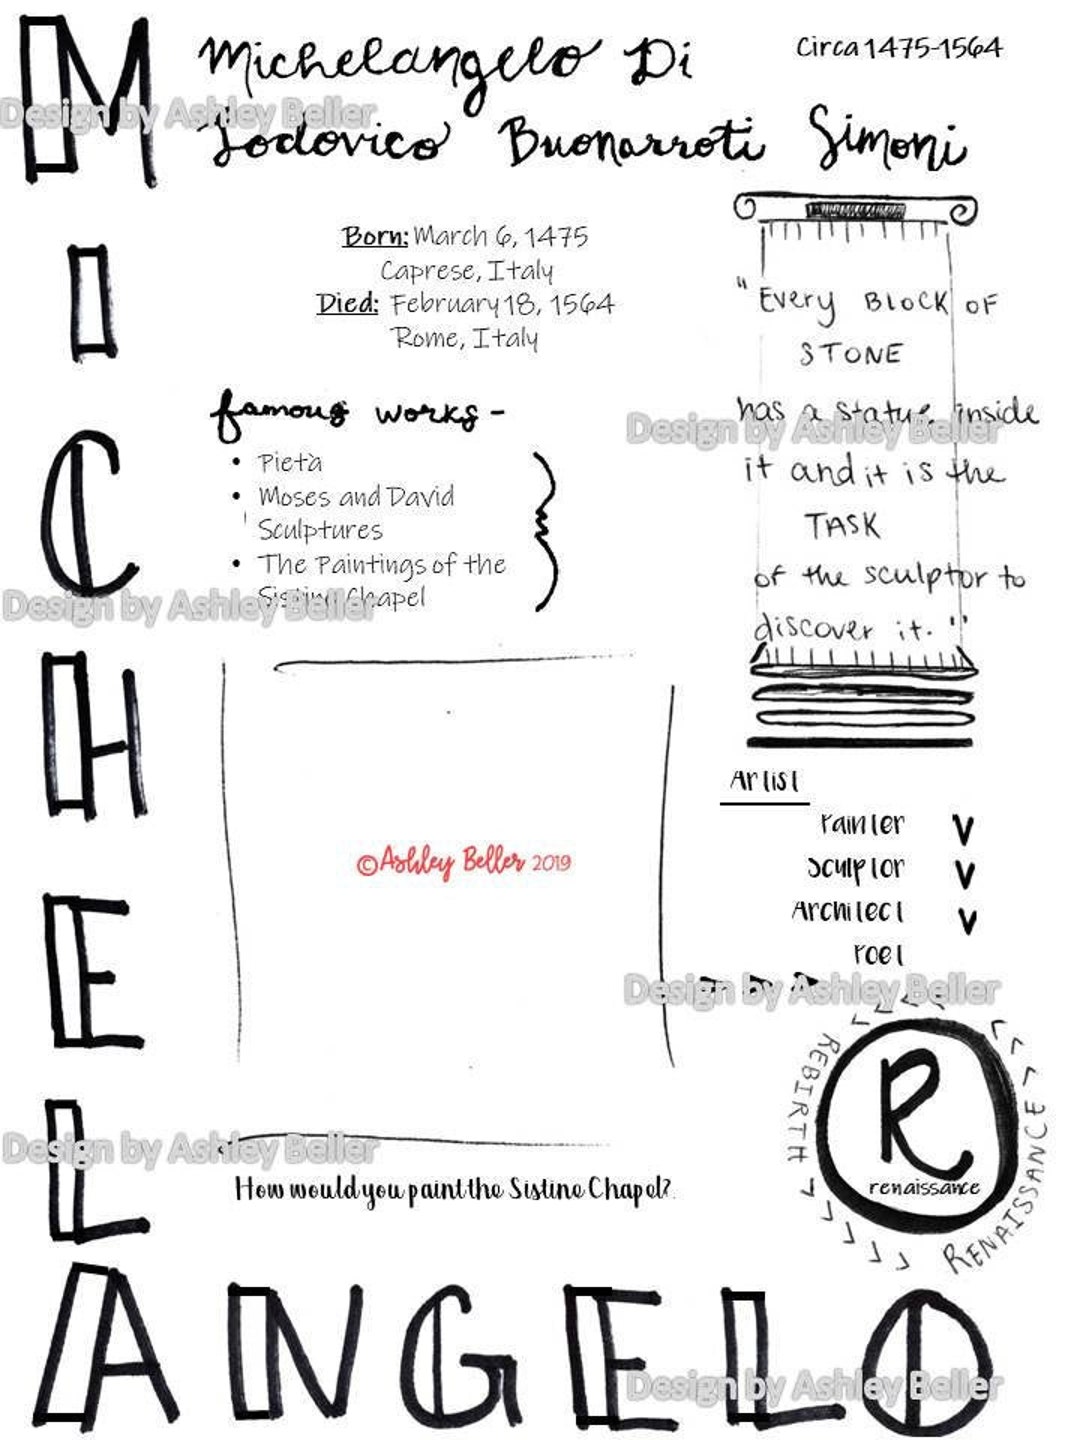 MICHELANGELO
Michelangelo Di
Lodovico Buonarroti Simoni
Circa 1475-1564
Born: March 6, 1475
Caprese, Italy
Died: February 18, 1564
Rome, Italy
famous works -
• Pietà
• Moses and David
Sculptures
• The Paintings of the
Sistine Chapel
"Every BLOCK OF
STONE
has a statue inside
it and it is the
TASK
of the sculptor to
discover it."
Artist
Painter V
Sculptor V
Architect V
Poet
©Ashley Beller 2019
How would you paint the Sistine Chapel?
REBIRTH
R
renaissance
RENAISSANCE
Design by Ashley Beller
Design by Ashley Beller
Design by Ashley Beller
Design by Ashley Beller
Design by Ashley Beller
Design by Ashley Beller